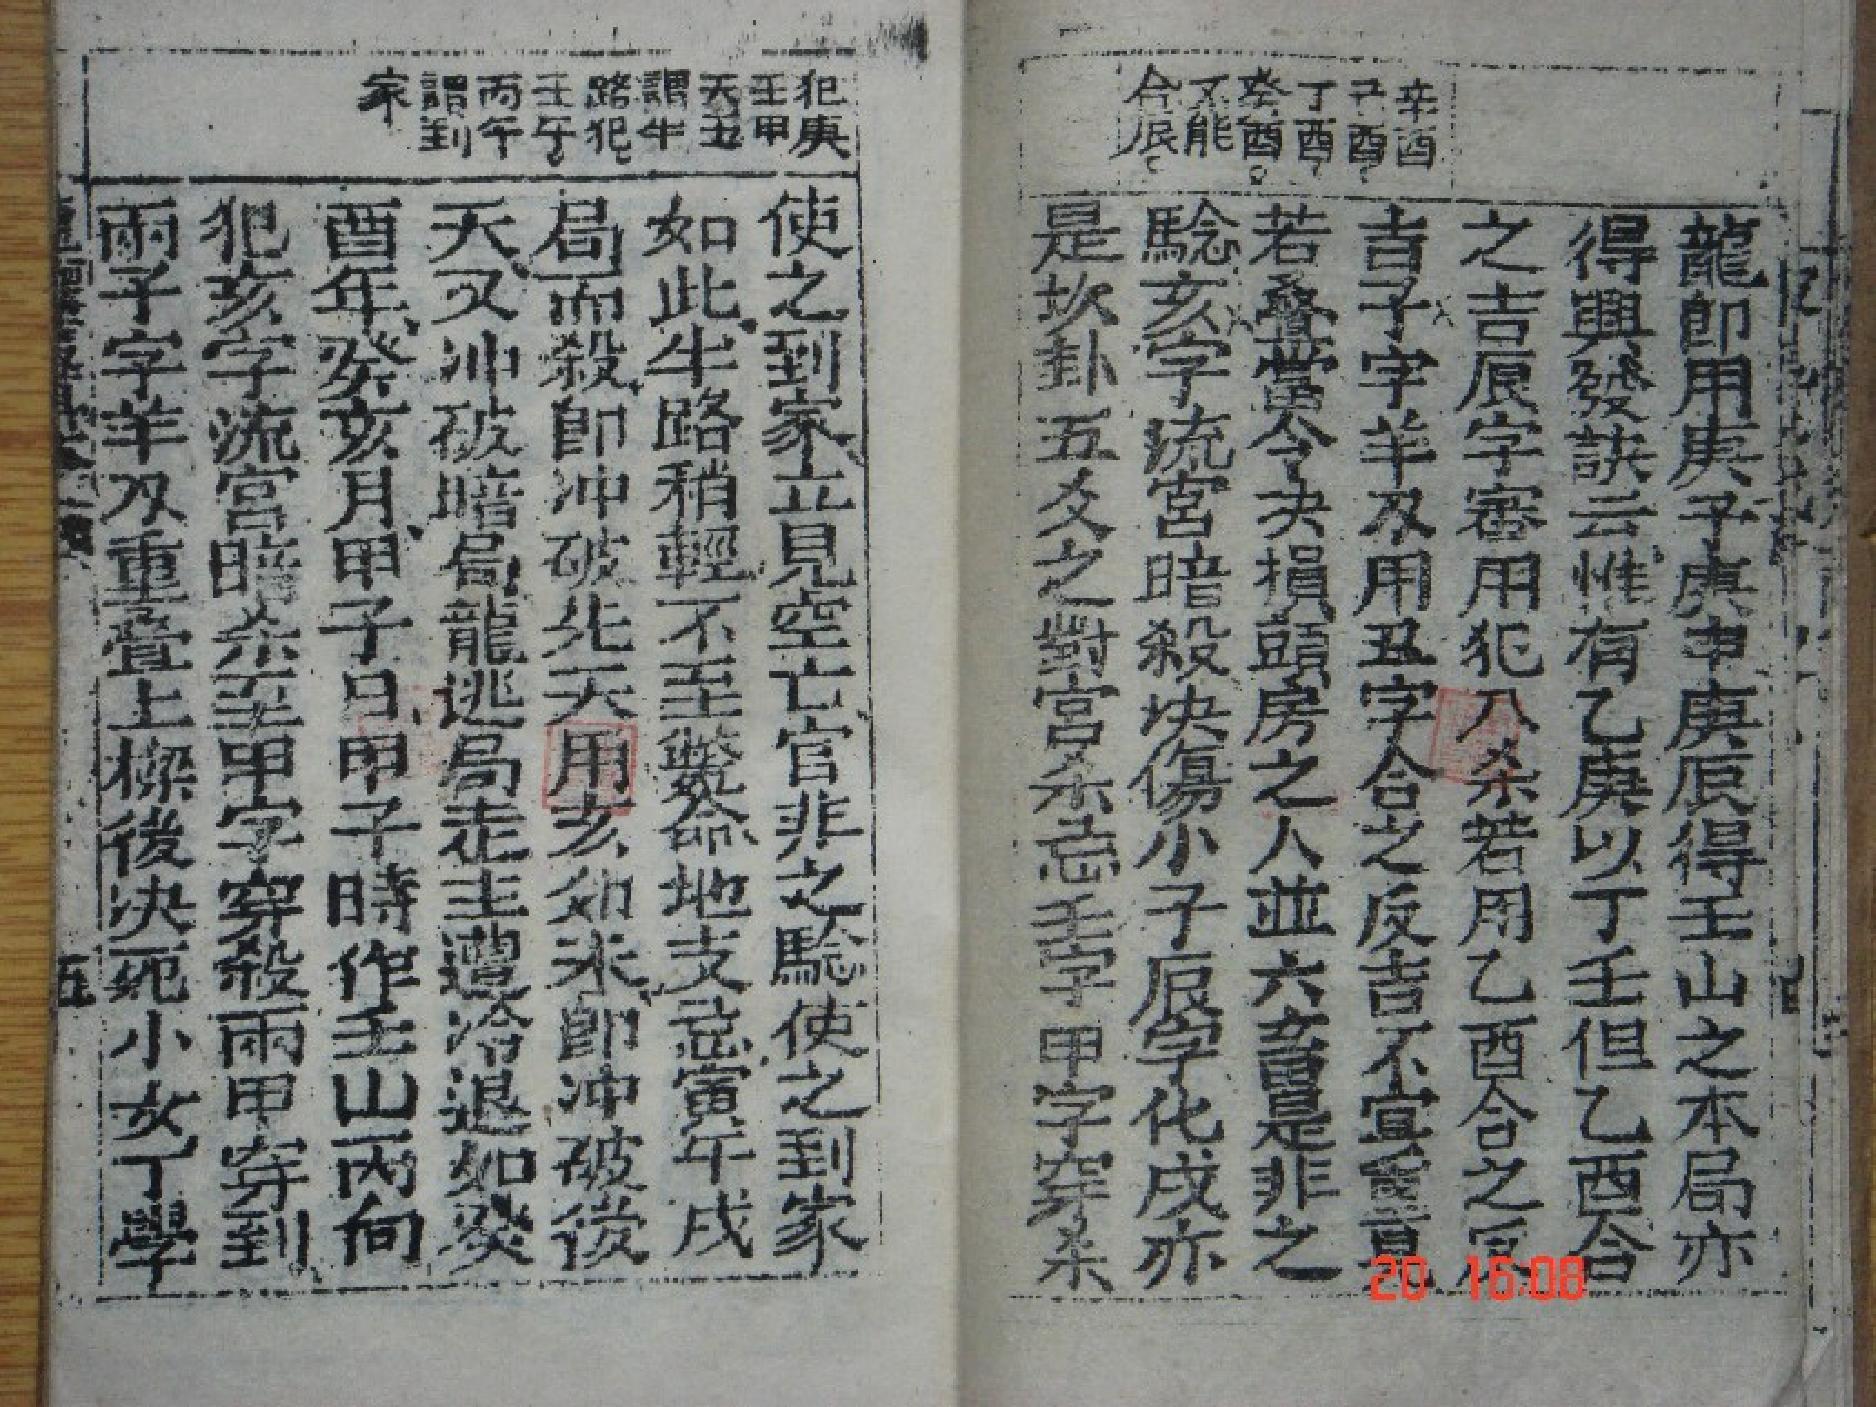 辛酉
子酉
丁酉
癸酉
又能
合辰
龍即用庚子庚申庚辰得壬山之本局亦
得興發訣云惟有乙庚以丁壬但乙酉合
之吉辰字審用犯八杀若用乙酉合之反
吉子字羊刃用丑字合之反吉不宜重見
若叠當令决損頭房之人並六畜是非之
驗亥字流宮暗殺块傷小子辰字化戌亦
是坎卦五爻之對宮杀忌壬字甲字穿杀
犯庚
壬甲
天丑
謂牛
路犯
壬午
丙午
謂到
家
使之到家立見空亡官非之驗使之到家
如此牛路稍輕不至發命地支忌寅年戌
局而殺即冲破先天用亥如未即冲破後
天又冲破暗局龍逃局走主遭冷退如癸
酉年癸亥月甲子日甲子時作壬山丙向
犯亥字流宮暗杀壬甲字穿殺兩甲穿到
兩子字羊刃重疊上樑後决死小女丁學
五
20 16:08